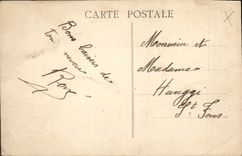 CARTE POSTALE
Bons baisers de
ton neveu
René
Monsieur et
Madame
Hanggi
St Fons